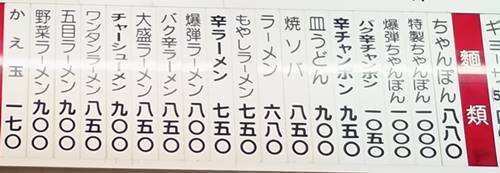 麺類
ちゃんぽん 八八〇
特製ちゃんぽん 一〇〇〇
爆弾ちゃんぽん 一〇〇〇
バク辛チャンポン 一〇五〇
辛チャンポン 九五〇
皿うどん 九〇〇
焼ソバ 八五〇
ラーメン 六八〇
もやしラーメン 七五〇
辛ラーメン 七五〇
爆弾ラーメン 八〇〇
バク辛ラーメン 八五〇
大盛ラーメン 八五〇
チャーシューメン 九〇〇
ワンタンラーメン 八五〇
五目ラーメン 九〇〇
野菜ラーメン 九〇〇
かえ玉 一七〇